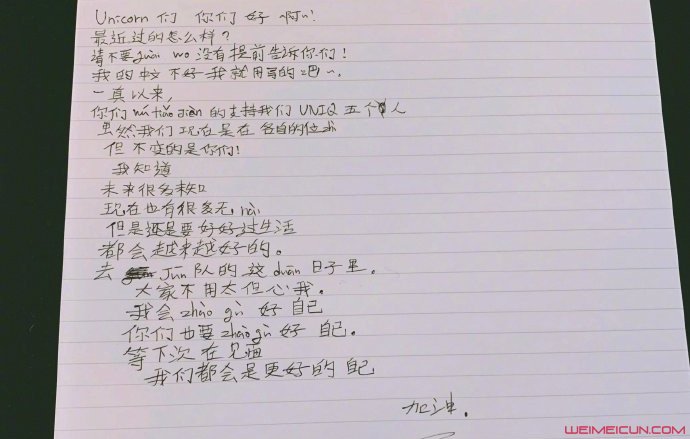 Unicorn 们 你们 好 啊~!
最近过的怎么样?
请不要guài wo 没有提前告诉你们!
我的中文不好 我就用写的吧~.
一真以来,
你们 wú tiáo jiàn 的支持我们 UNIQ 五个人
虽然我们现在是在各自的位
但不变的是你们!
我知道
未来很多未知
现在也有很多无 nài
但是还是要好好过生活
都会越来越好的。
去 Jūn 队的这 duàn 日子里。
大家不用太但心我。
我会 zhào gù 好 自己
你们也要 zhào gù 好 自己.
等下次 在见面
我们都会是更好的自己
加油.
WEIMEICUN.COM